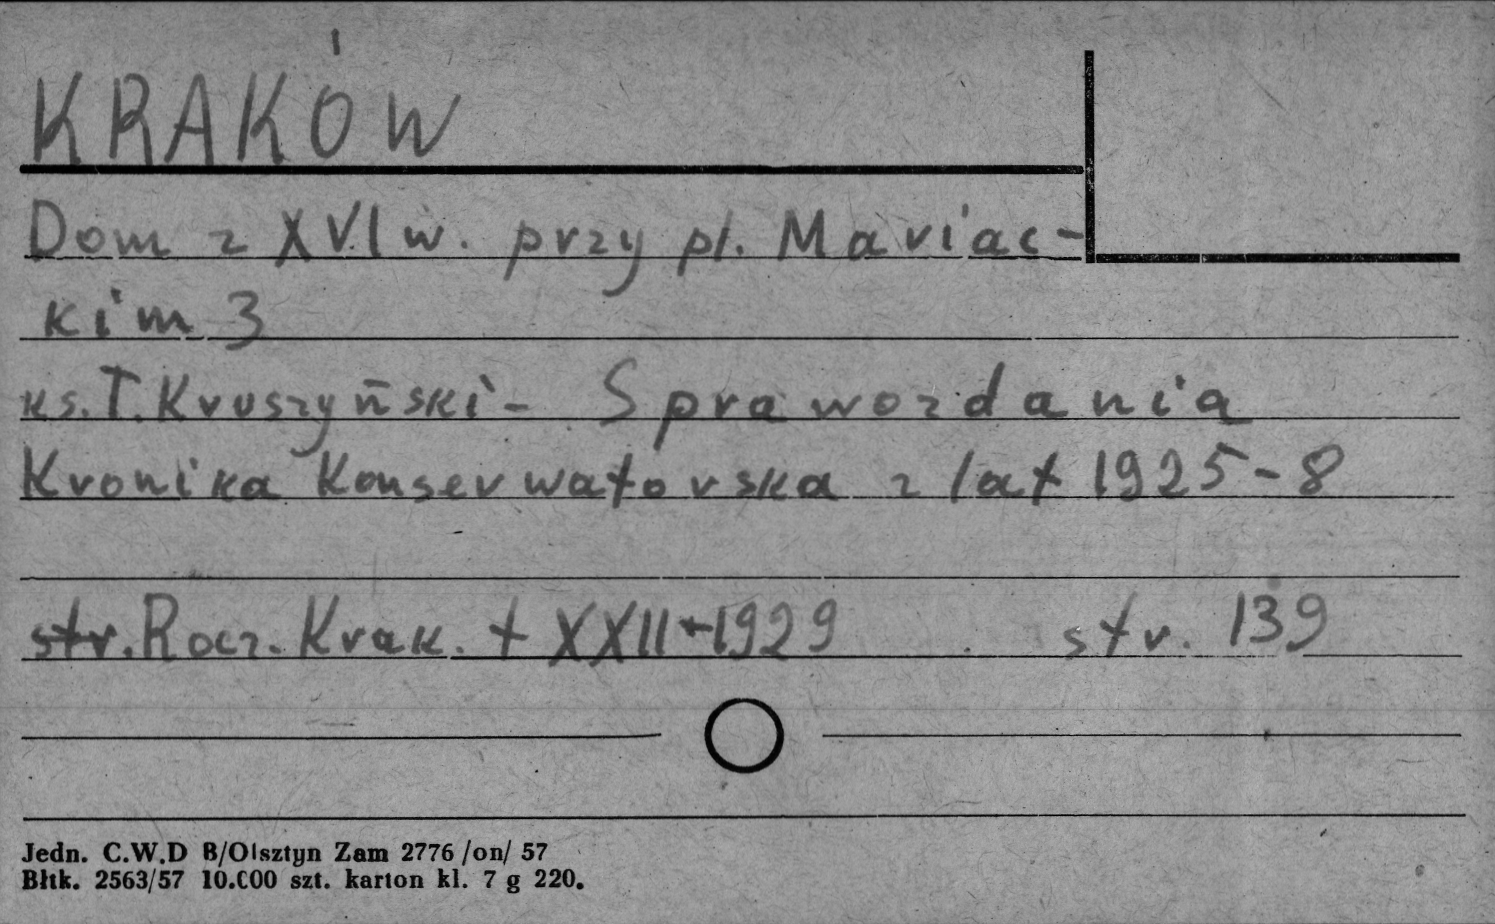 KRAKÓW
Dom z XVI w. przy pl. Mariac-
kim 3
ks. T. Kruszyński - Sprawozdania
Kronika Konserwatorska z lat 1925-8
str. Rocz. Krak. t XXII-1929 str. 139
Jedn. C.W.D B/Olsztyn Zam 2776 /on/ 57
Błtk. 2563/57 10.000 szt. karton kl. 7 g 220.